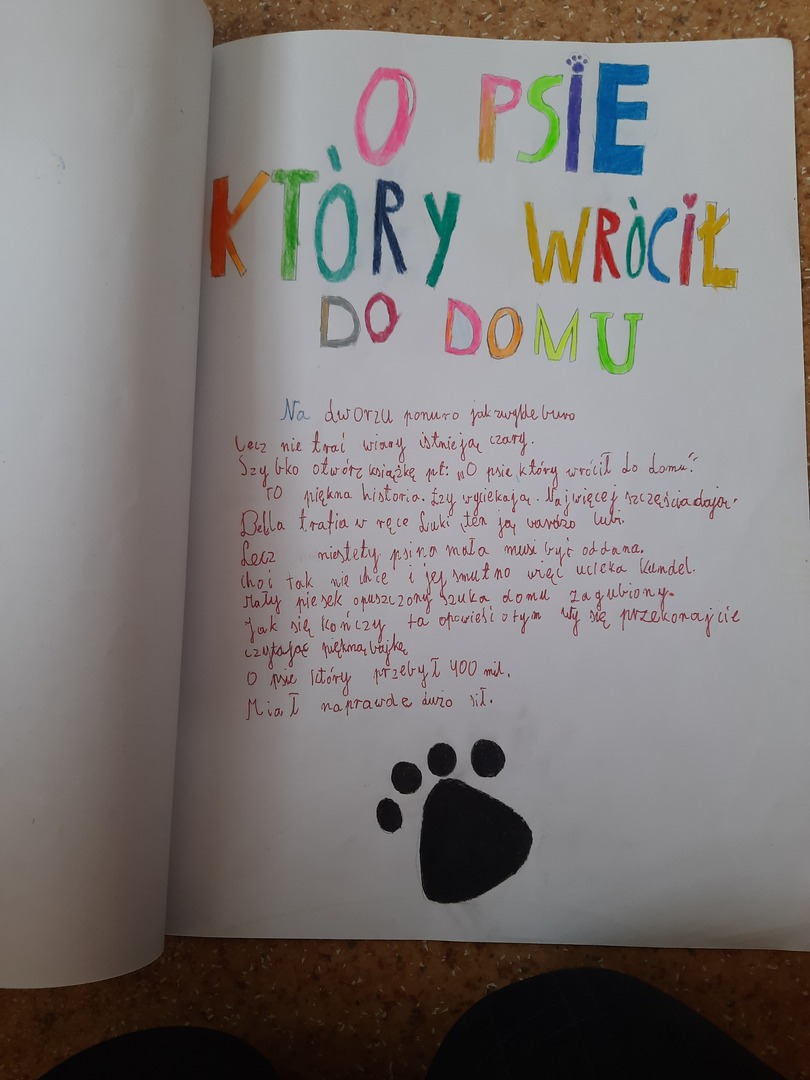 O PSIE
KTÓRY WRÓCIŁ
DO DOMU
Na dworzu ponuro jak zwykle buro
Lecz nie trać wiary istnieją czary.
Szybko otwórz książkę pt: „O psie który wrócił do domu".
TO piękna historia. Łzy wyciekają. Najwięcej szczęścia dają.
Bella trafia w ręce Luki, ten ją bardzo lubi.
Lecz niestety psina mała musi być oddana.
choć tak nie chce i jej smutno więc ucieka kundel.
Mały piesek opuszczony szuka domu zagubiony.
Jak się kończy ta opowieść o tym wy się przekonajcie
czytając piękną bajkę
O psie który przebył 400 mil.
Miał naprawdę dużo sił.